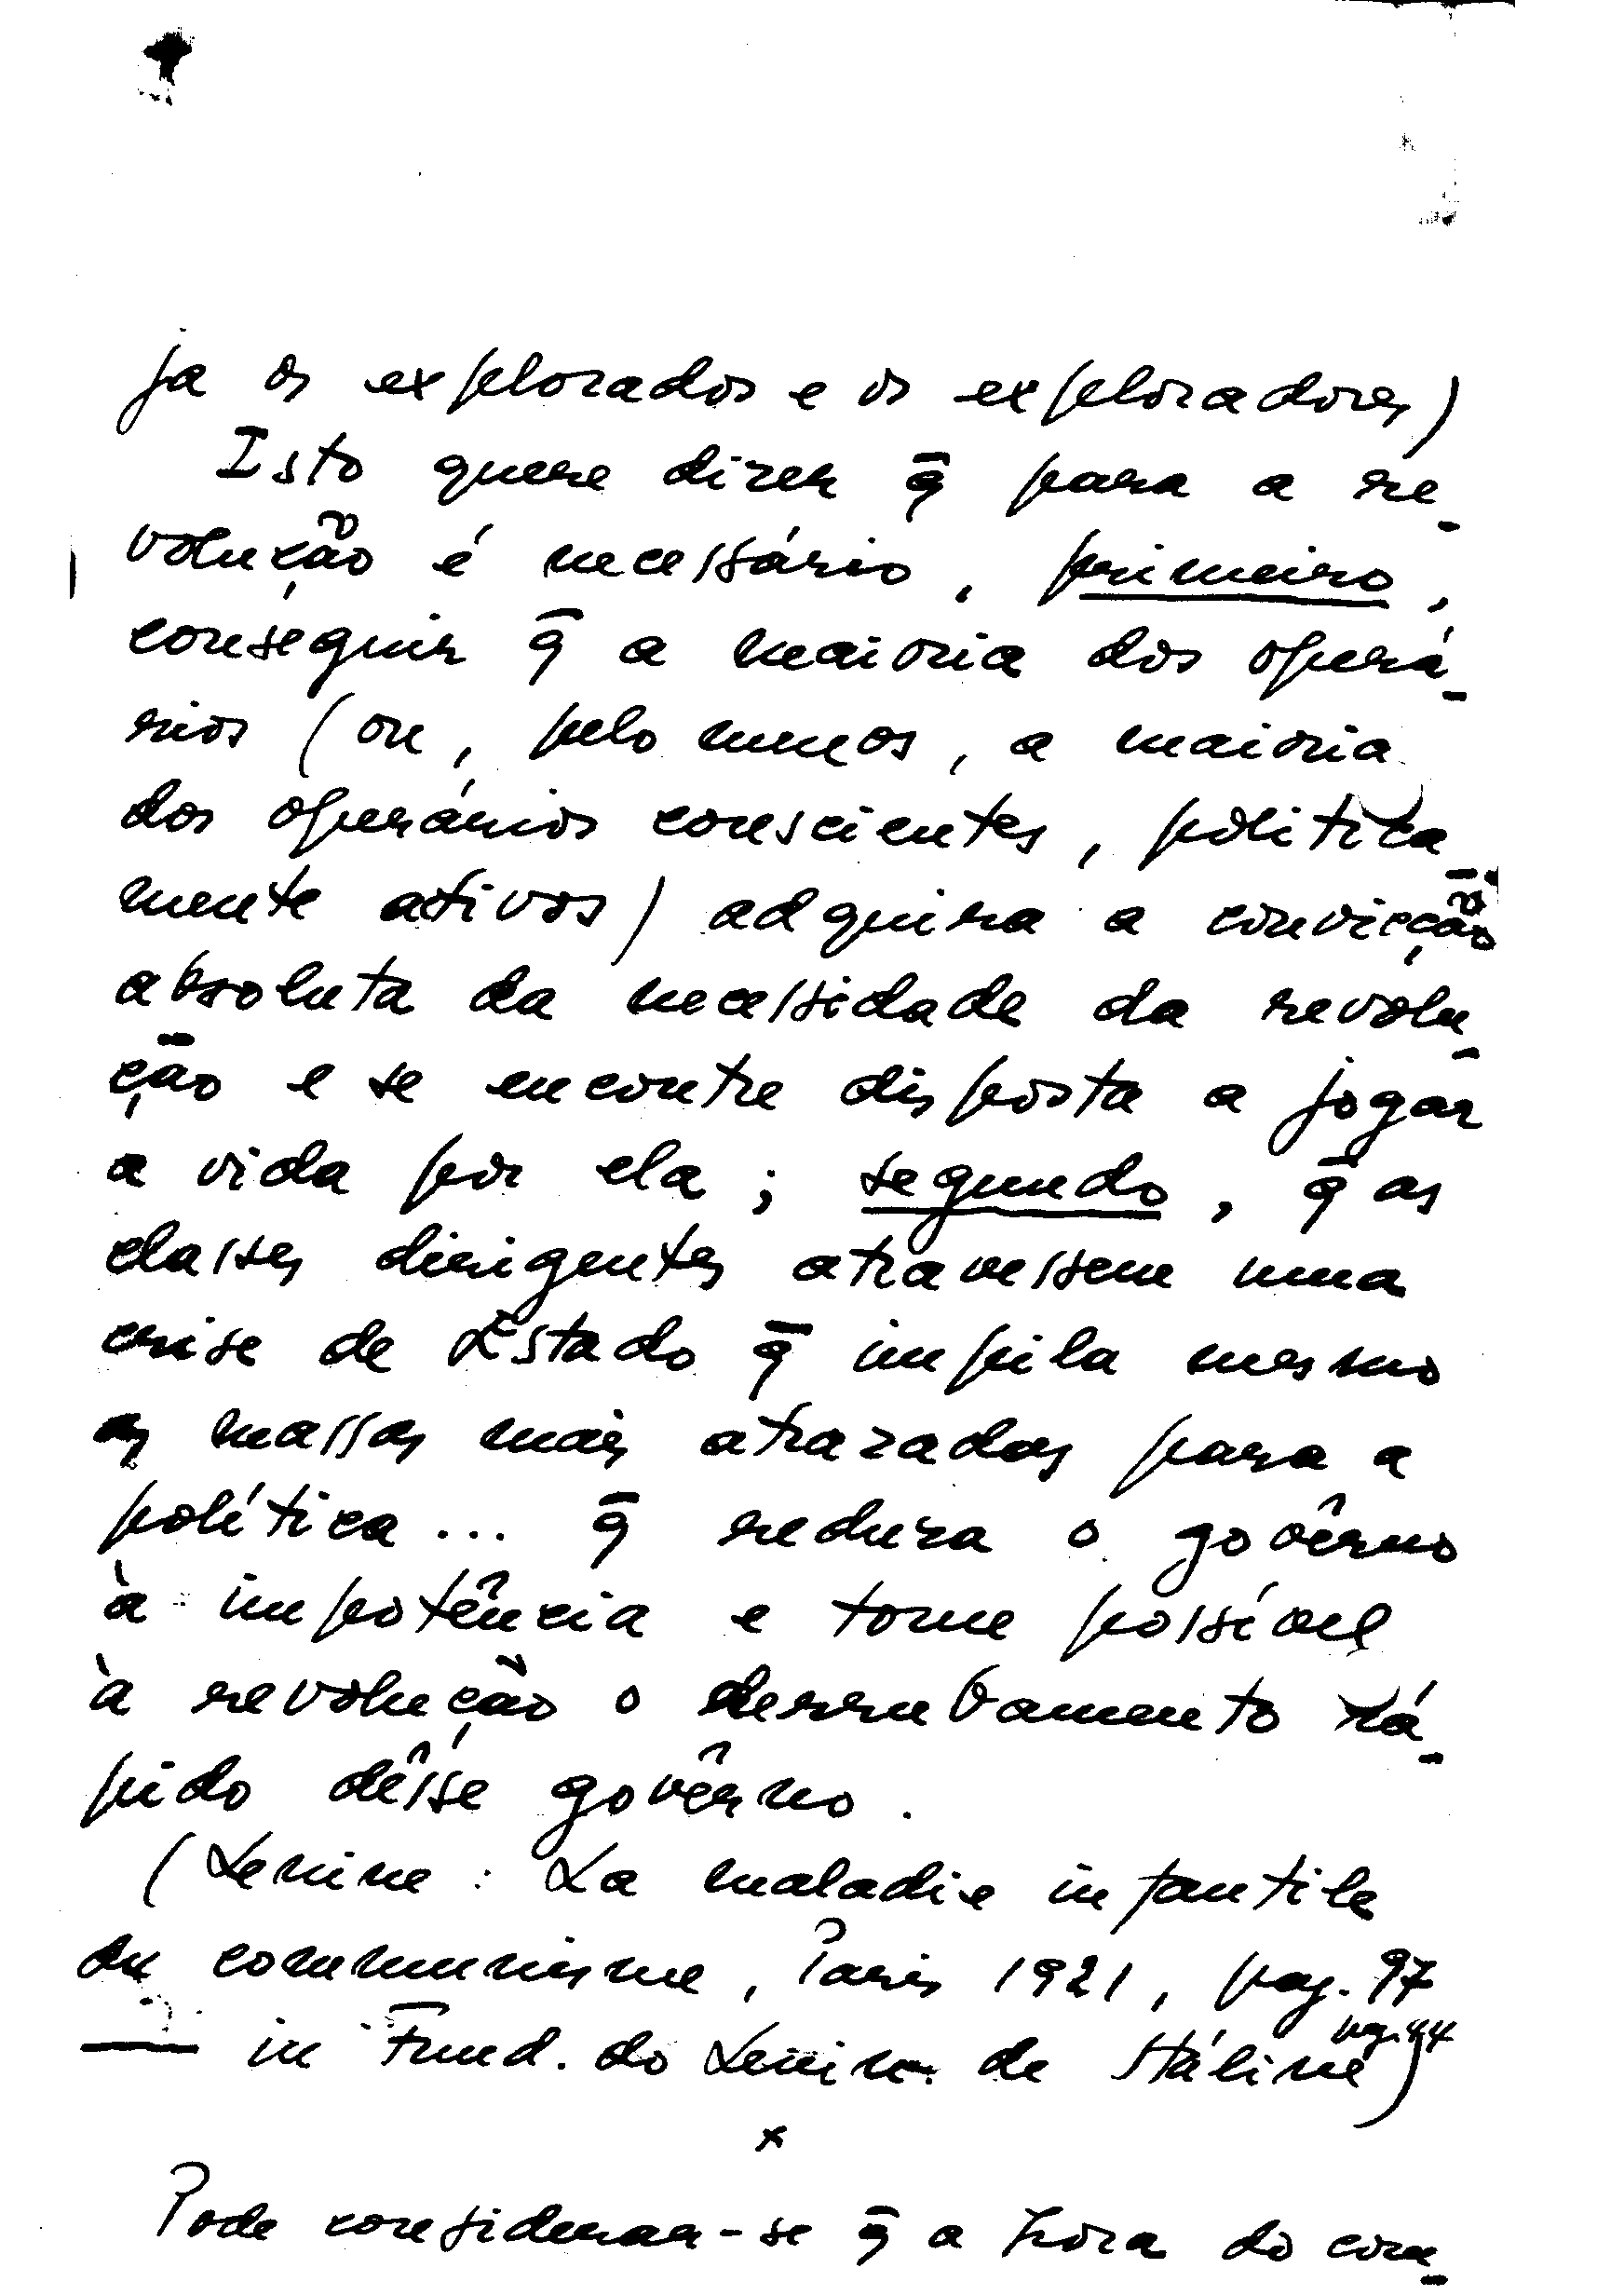 ja os explorados e os exploradores)
Isto quere dizer q̄ para a re-
volução é necessário, primeiro,
conseguir q̄ a maioria dos operá-
rios (ou, pelo menos, a maioria
dos operários conscientes, politica-
mente ativos) adquira a convicção
absoluta da necessidade da revolu-
ção e se encontre disposta a jogar
a vida por ela; segundo, q̄ as
classes dirigentes atravessem uma
crise de Estado q̄ impila mesmo
as massas mais atrazadas para a
política... q̄ reduza o govêrno
à impotência e torne possível
à revolução o derrubamento rá-
pido dêsse govêrno.
(Lenine: La maladie infantile
du communisme, Paris 1921, pag. 97
— in Fund. do Lenin. de Stáline pag. 44)
x
Pode considerar-se q̄ a hora do com-